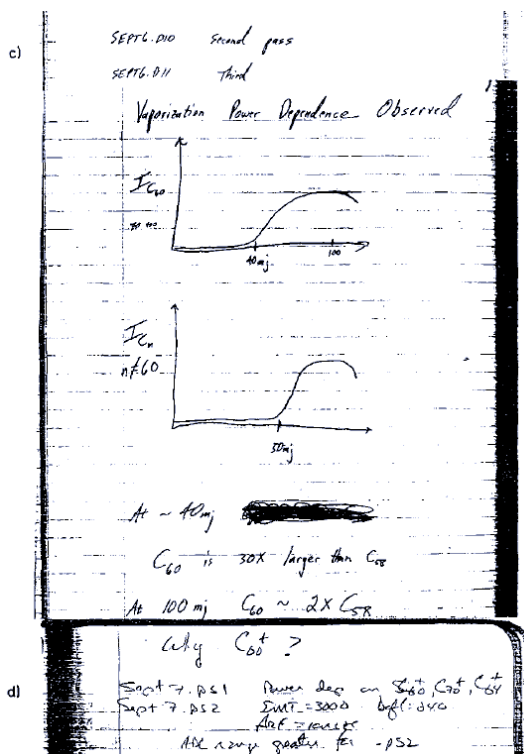 c)
SEPT6.D10 Second pass
SEPT6.D11 Third
Vaporization Power Dependence Observed
I C60
40mj
100
I Cn
n≠60
50mj
At ~ 40mj
C60 is 30X larger than C58
At 100 mj C60 ~ 2X C58
Why C60+ ?
d)
Sept 7.PS1 Power dep on C70+,
Sept 7.PS2 =3000
range greater for -PS2